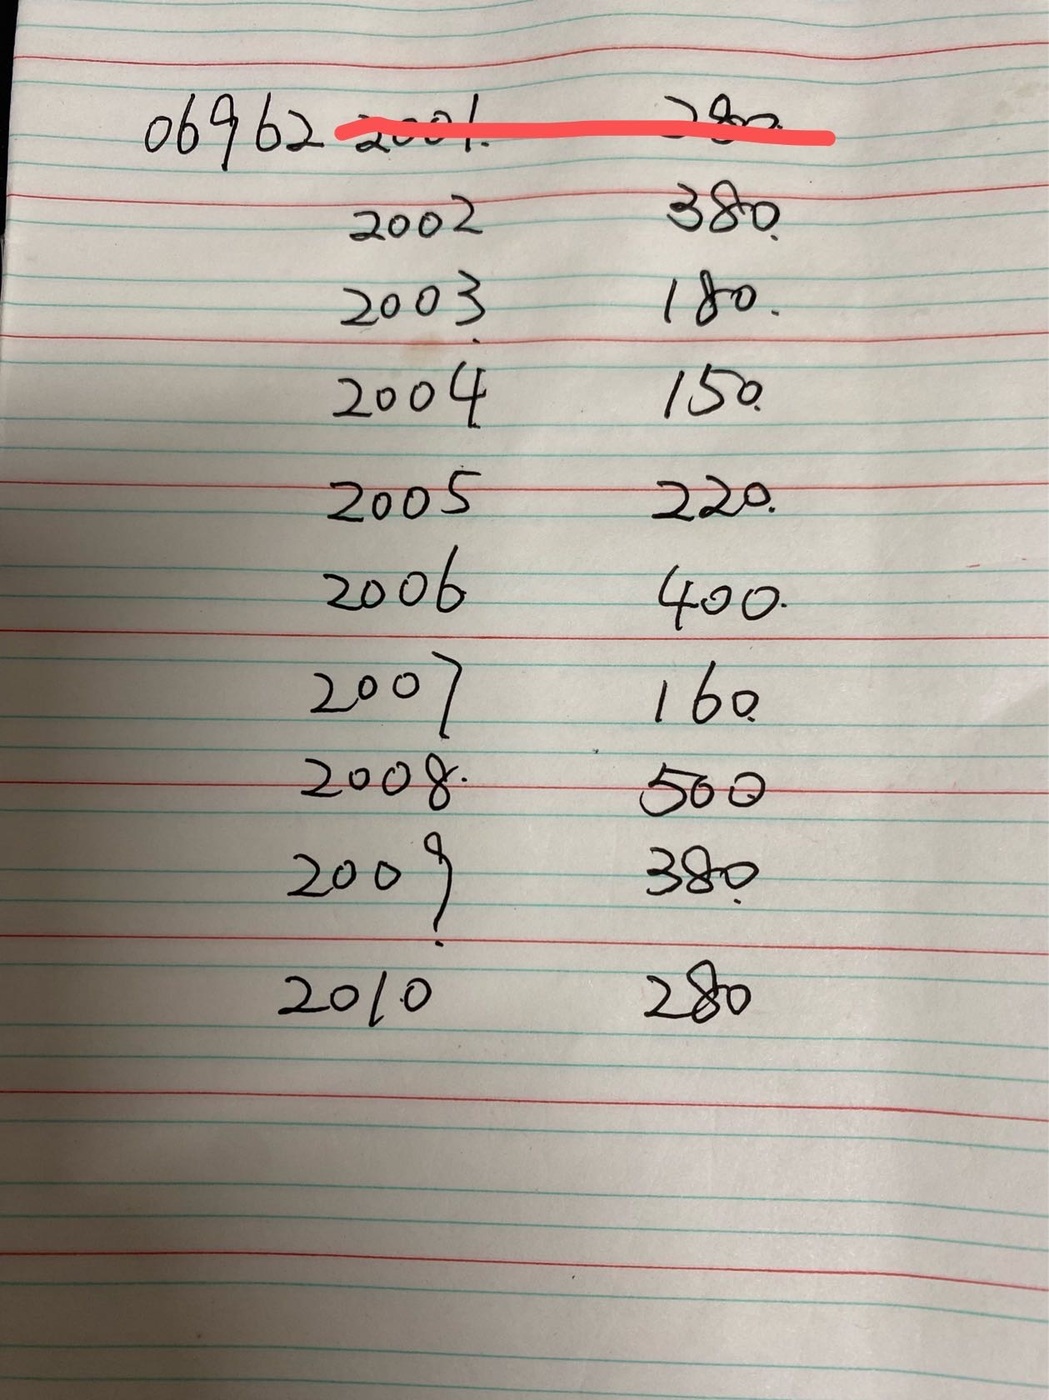 06962 2001. 280.
2002 380.
2003. 180.
2004 150.
2005 220.
2006 400.
2007 160.
2008. 500
2009. 380.
2010 280